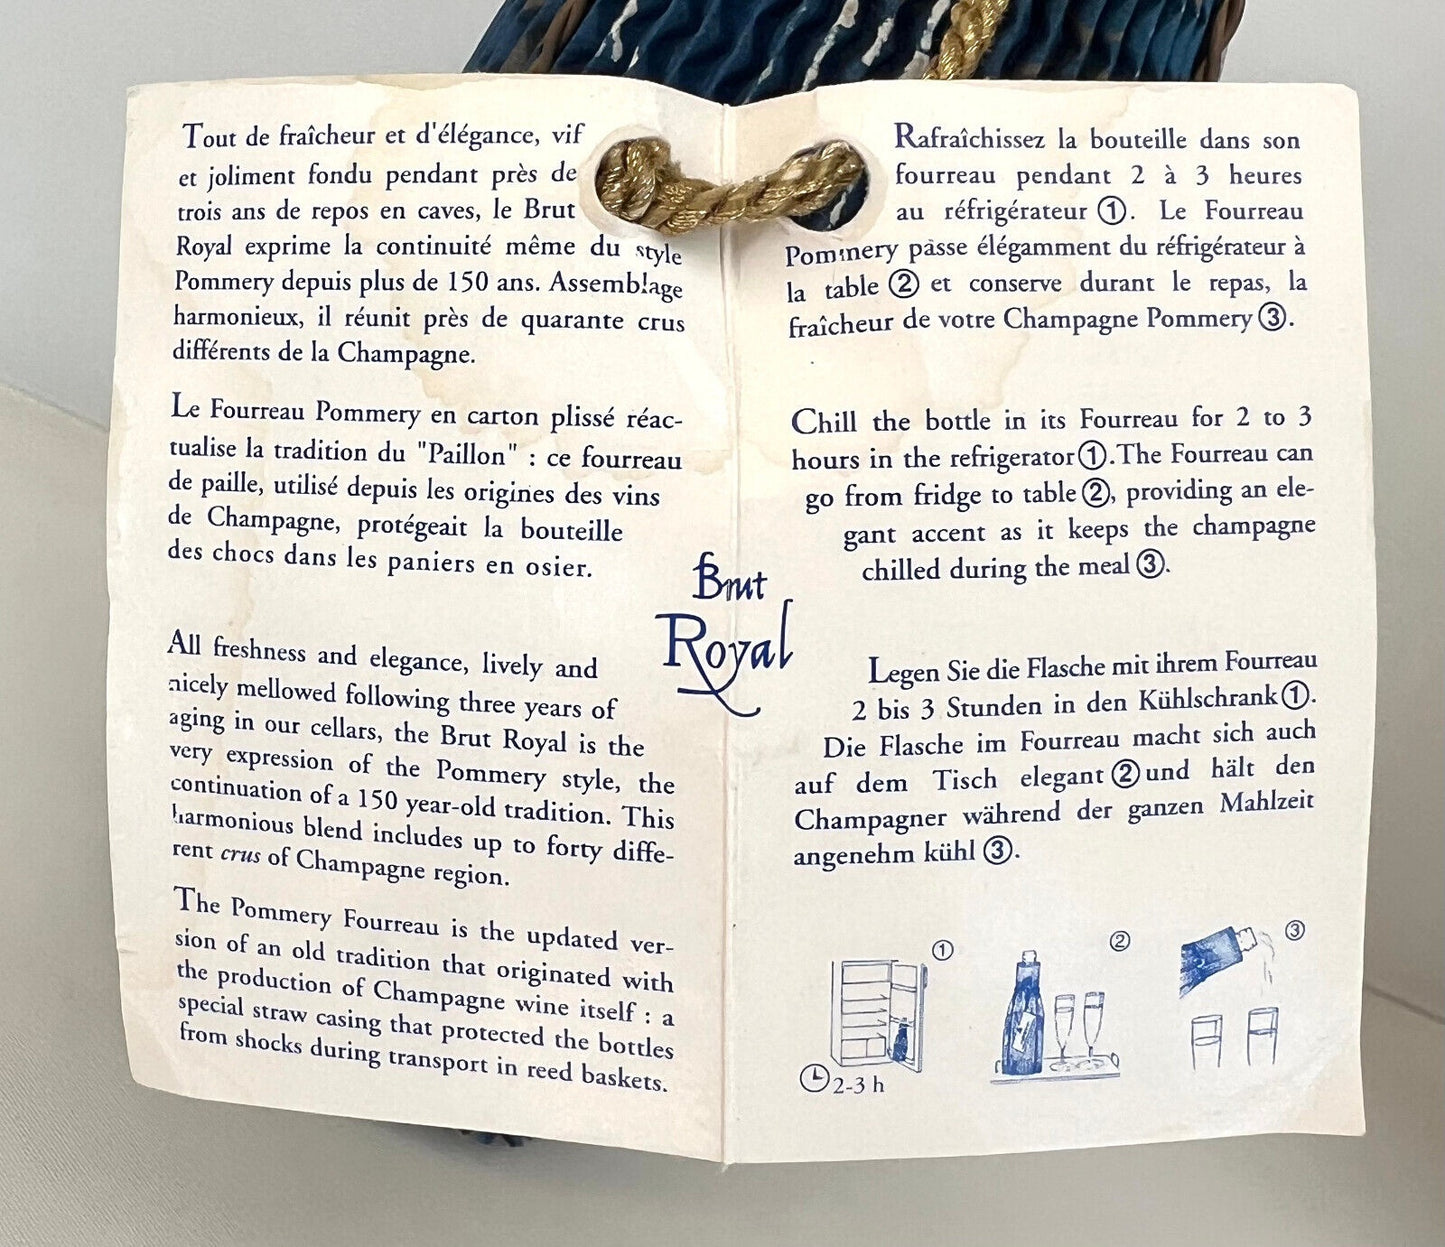 Tout de fraîcheur et d'élégance, vif
et joliment fondu pendant près de
trois ans de repos en caves, le Brut
Royal exprime la continuité même du style
Pommery depuis plus de 150 ans. Assemblage
harmonieux, il réunit près de quarante crus
différents de la Champagne.
Le Fourreau Pommery en carton plissé réac-
tualise la tradition du "Paillon" : ce fourreau
de paille, utilisé depuis les origines des vins
de Champagne, protégeait la bouteille
des chocs dans les paniers en osier.
All freshness and elegance, lively and
nicely mellowed following three years of
aging in our cellars, the Brut Royal is the
very expression of the Pommery style, the
continuation of a 150 year-old tradition. This
harmonious blend includes up to forty diffe-
rent crus of Champagne region.
The Pommery Fourreau is the updated ver-
sion of an old tradition that originated with
the production of Champagne wine itself : a
special straw casing that protected the bottles
from shocks during transport in reed baskets.
Brut
Royal
Rafraîchissez la bouteille dans son
fourreau pendant 2 à 3 heures
au réfrigérateur ①. Le Fourreau
Pommery passe élégamment du réfrigérateur à
la table ② et conserve durant le repas, la
fraîcheur de votre Champagne Pommery ③.
Chill the bottle in its Fourreau for 2 to 3
hours in the refrigerator ①. The Fourreau can
go from fridge to table ②, providing an ele-
gant accent as it keeps the champagne
chilled during the meal ③.
Legen Sie die Flasche mit ihrem Fourreau
2 bis 3 Stunden in den Kühlschrank ①.
Die Flasche im Fourreau macht sich auch
auf dem Tisch elegant ② und hält den
Champagner während der ganzen Mahlzeit
angenehm kühl ③.
① ② ③
2-3 h